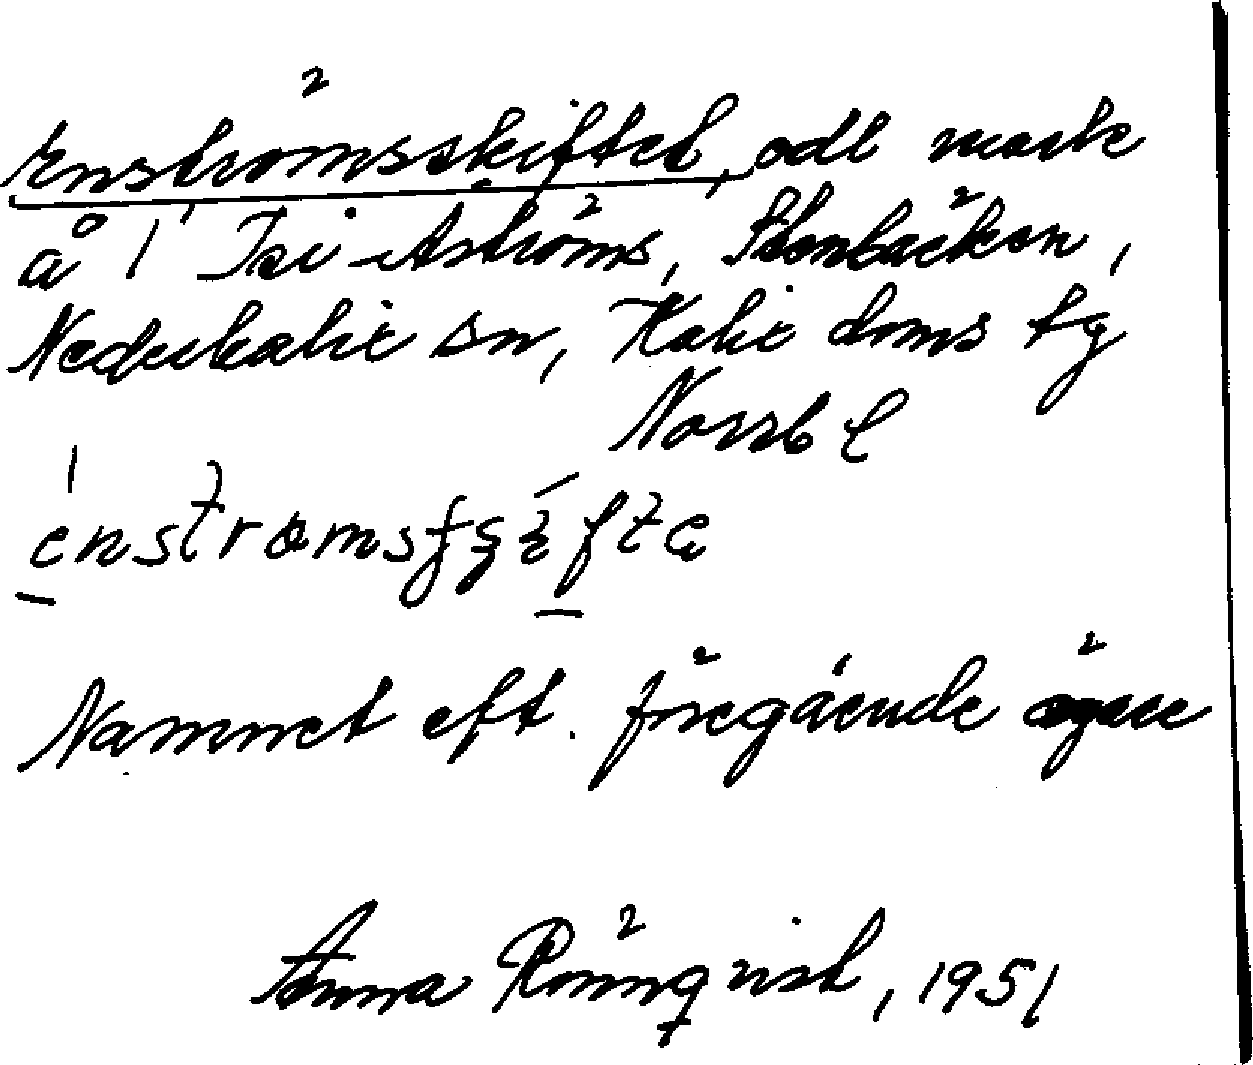 Enströmsskiftet, odl mark
å 1 Isi Åströms, Stenbäcken,
Nederkalix sn, Kalix doms tg
Norrb l
Namnet eft. föregående ägare
Anna Rönnqvist, 1951